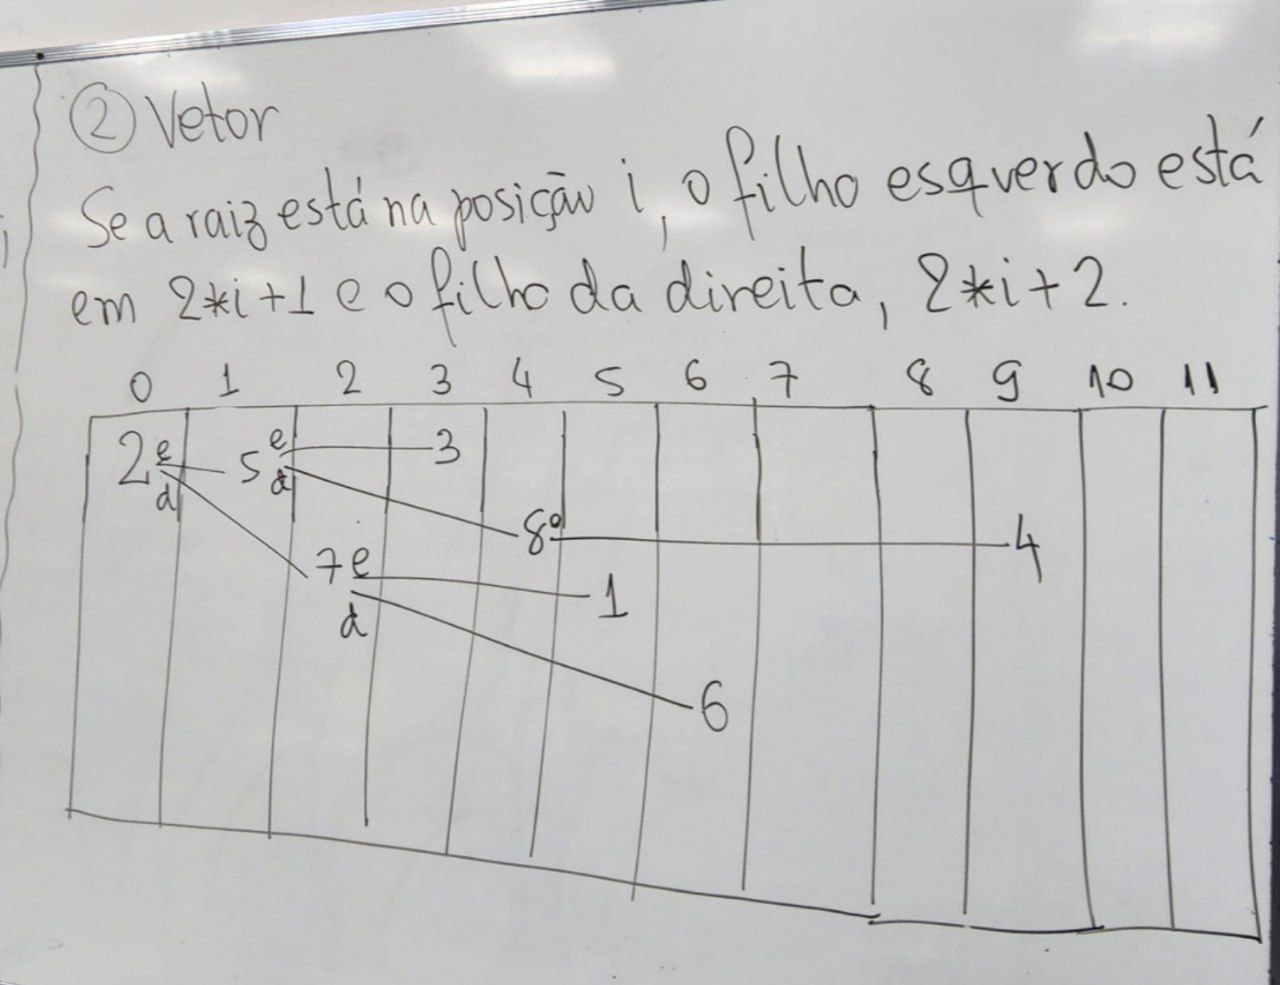 ② Vetor
Se a raiz está na posição i, o filho esquerdo está
em 2*i+1 e o filho da direita, 2*i+2.
0 1 2 3 4 5 6 7 8 9 10 11
2 e 5 e 3
d d
8 4
7 e 1
d
6